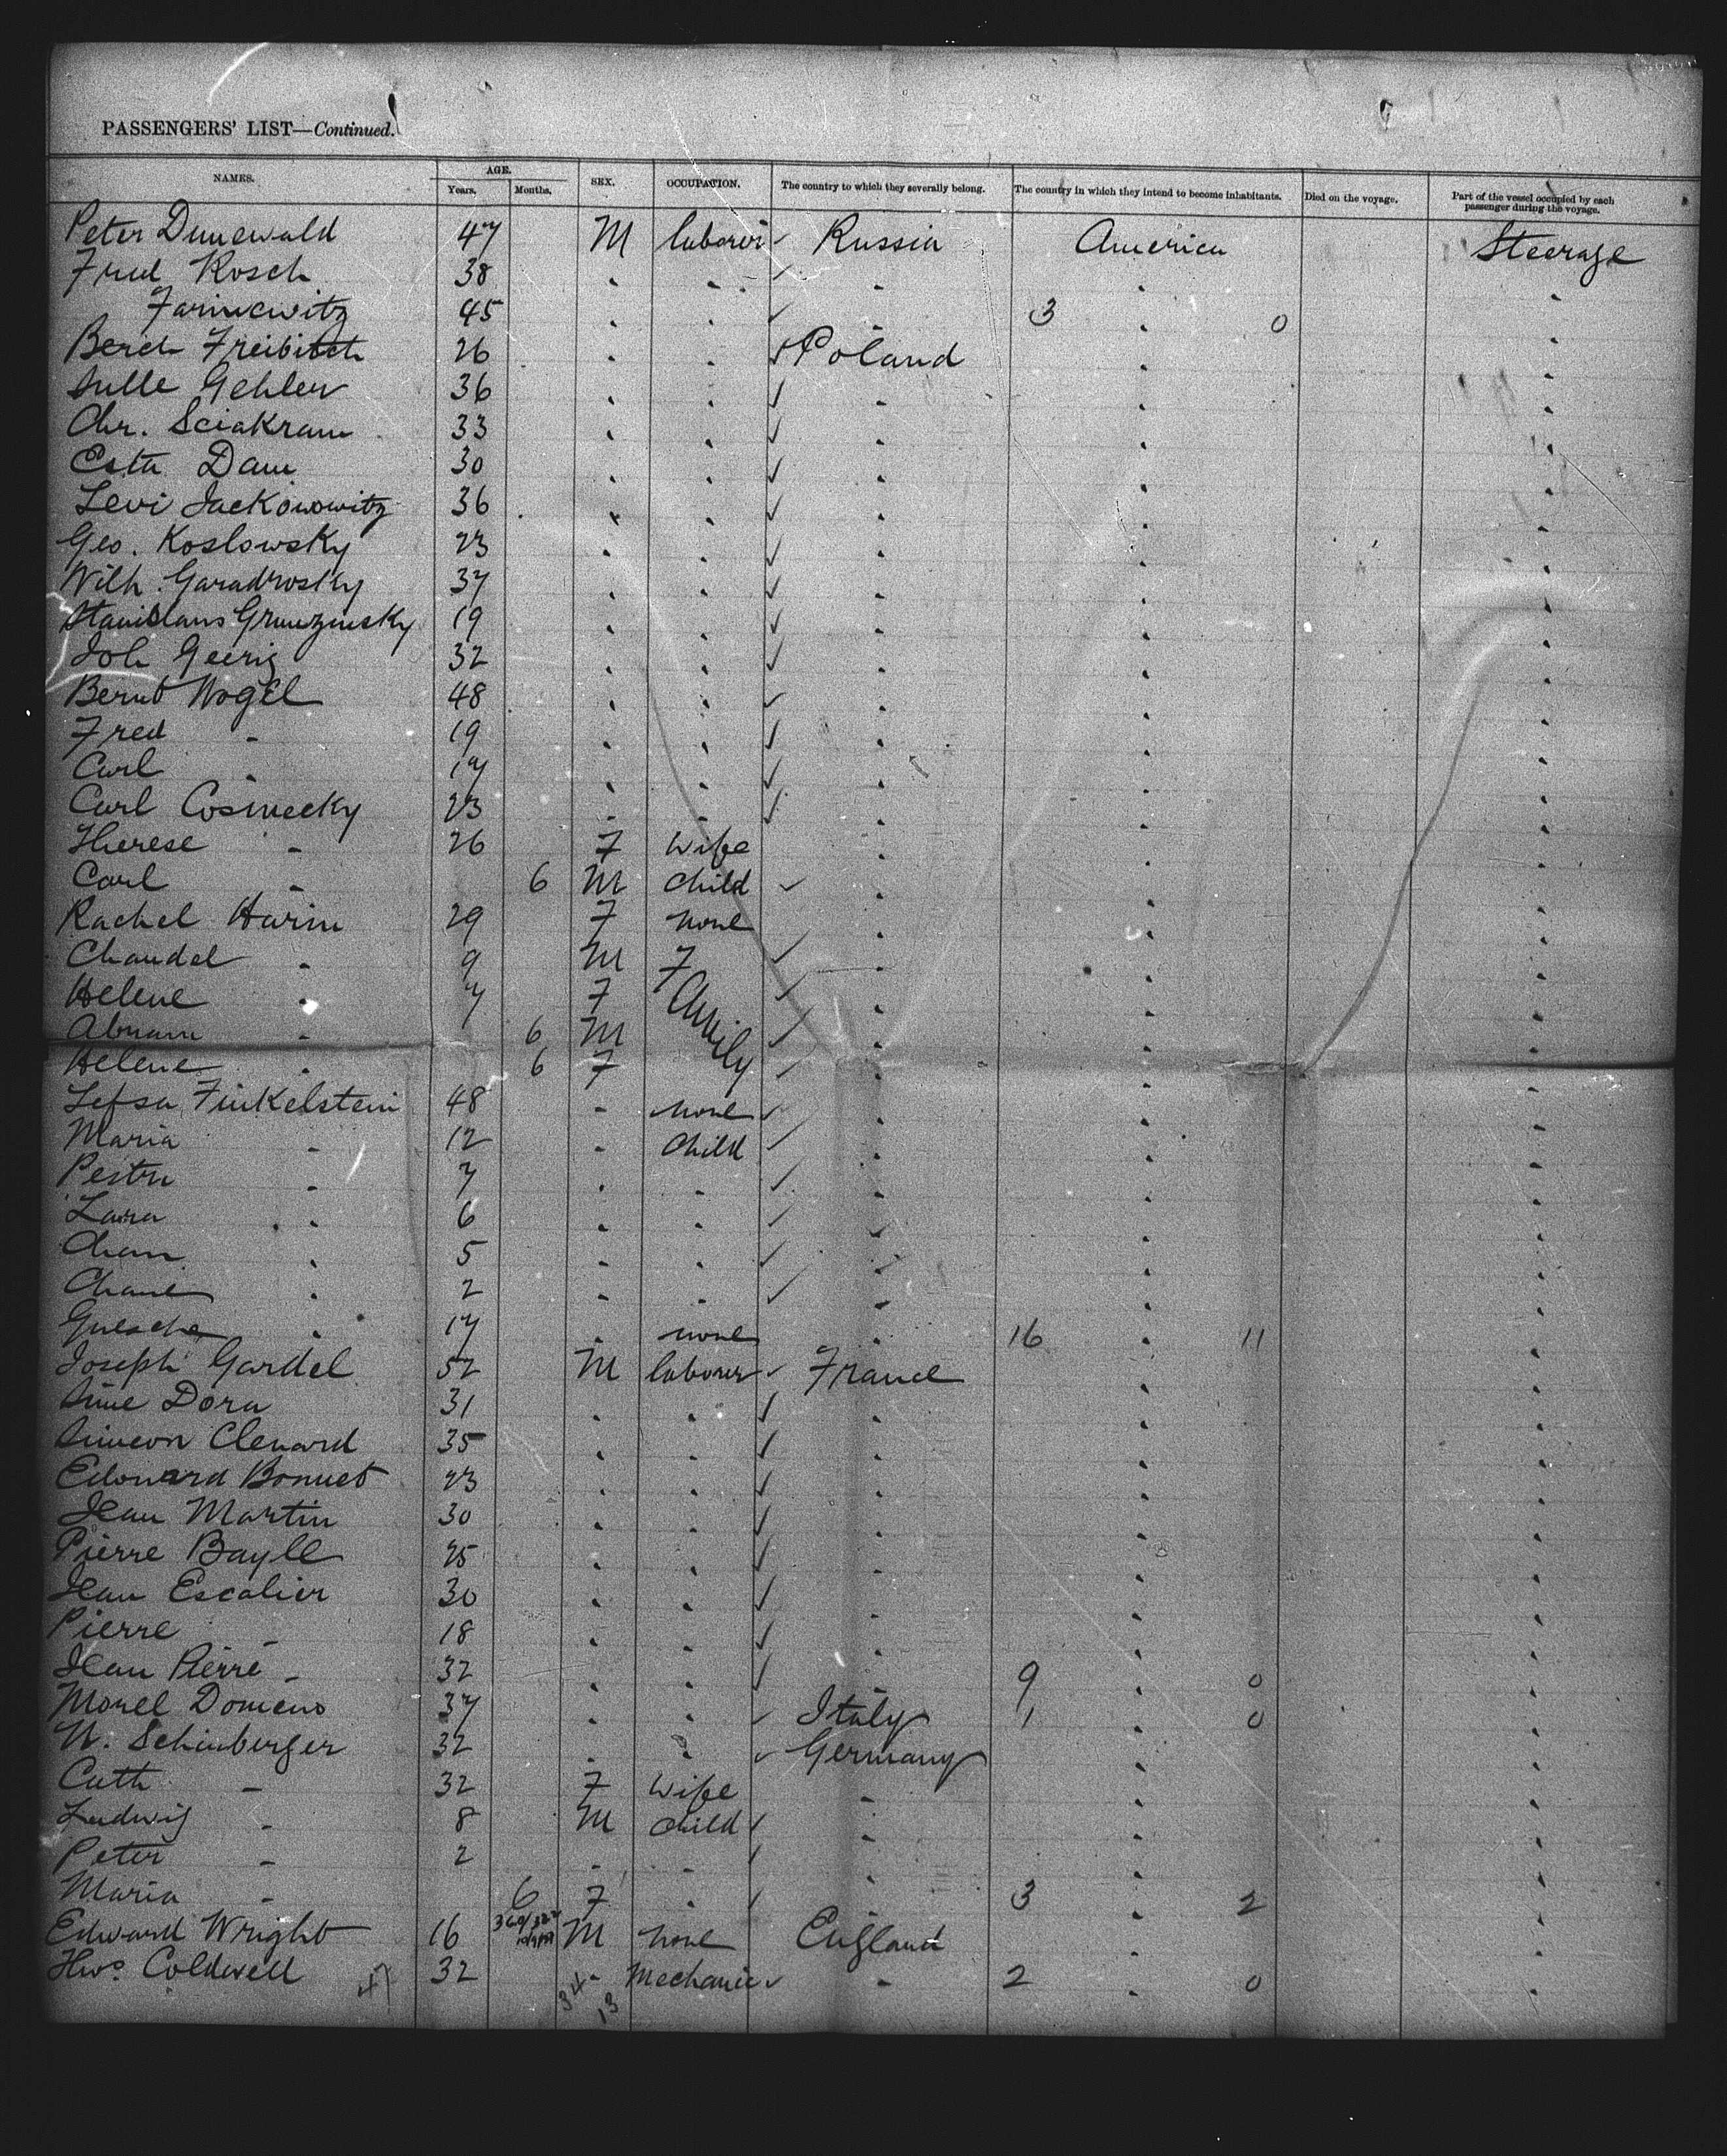 PASSENGERS' LIST—Continued.
NAMES. AGE. Years. Months. SEX. OCCUPATION. The country to which they severally belong. The country in which they intend to become inhabitants. Died on the voyage. Part of the vessel occupied by each passenger during the voyage.
Peter Dunewald 47 M laborer Russia America Steerage
Fred Kosch 38
45 3 0
Berch 26 Poland
Gehler 36
Chr. Sciakram 33
Esta Dam 30
Levi Jackowowitz 36
Geo. Koslowsky 23
Wilh. Garadrosky 37
19
Joh Geerig 32
Bernt Wogel 48
Fred - 19
Carl " 17
Carl Cosmecky 23
Therese - 26 F wife
Carl - 6 M child
Rachel Harin 29 F none
Chaudel - 9 M Family
Helene " 7 F
Abram - 6 M
Helene " 6 F
Finkelstein 48 - none
Maria - 12 - Child
7
6
5
Chane " 2
17 none 16 11
Joseph Gardel 52 M laborer France
Dora 31
Simeon Clenard 35
Edouard Bonnet 23
Jean Martin 30
Pierre Bayle 25
Jean Escalier 30
Pierre - 18
Jean Pierre - 32 9 0
Morel Domeno 37 Italy 1 0
N. Schinberger 32 Germany
Cath - 32 F wife
Ludwig - 8 M child
Peter - 2
Maria - 6 F 3 2
Edward Wright 16 M none England
Coldwell 32 - Mechanic - 2 0
47 34 13